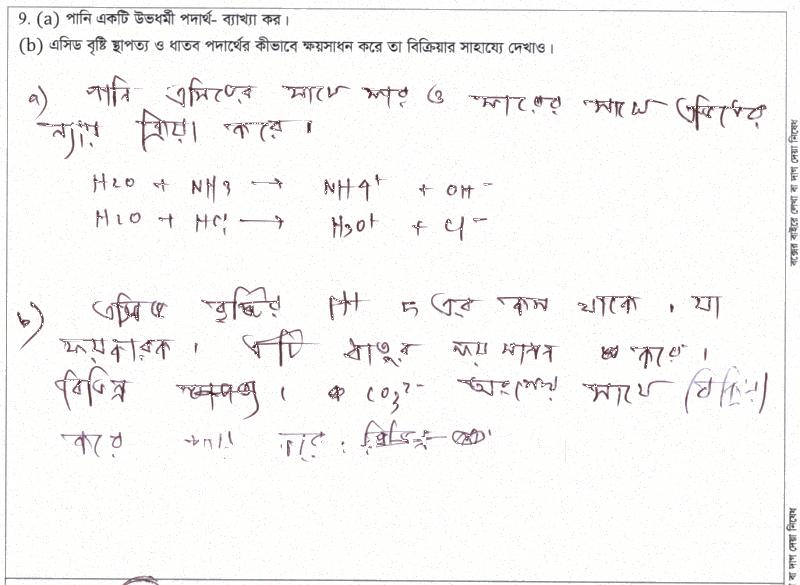 9. (a) পানি একটি উভধর্মী পদার্থ- ব্যাখ্যা কর।
(b) এসিড বৃষ্টি স্থাপত্য ও ধাতব পদার্থের কীভাবে ক্ষয়সাধন করে তা বিক্রিয়ার সাহায্যে দেখাও।
a) পানি এসিডের সাথে ক্ষার ও ক্ষারের সাথে এসিডের
ন্যায় ক্রিয়া করে।
H2O + NH3 → NH4+ + OH-
H2O + HCl → H3O+ + Cl-
b) এসিড বৃষ্টির PH 5 এর কম থাকে। যা
ক্ষয়কারক। এটি ধাতুর ক্ষয় সাধন করে।
বিভিন্ন CO3 2- অংশের সাথে বিক্রিয়া
করে
বক্সের বাইরে লেখা বা দাগ দেয়া নিষেধ
বা দাগ দেয়া নিষেধ